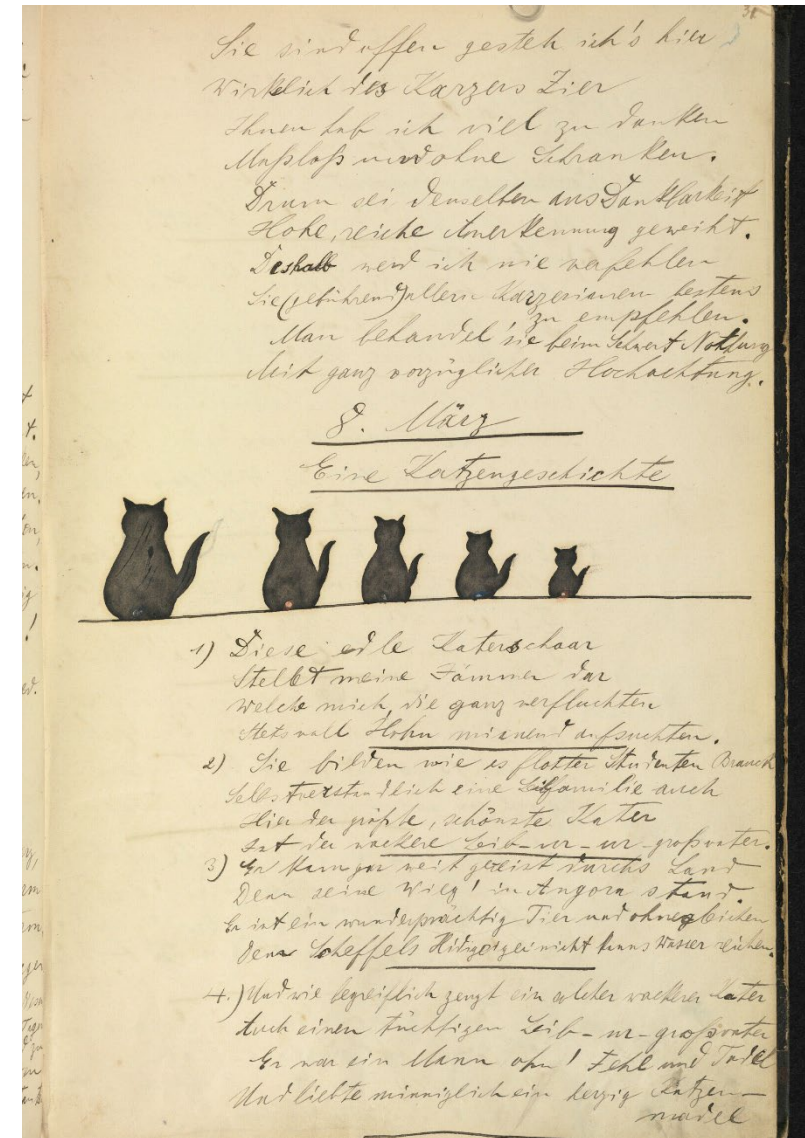 31
Sie sind offen gesteh ich's hier
Wirklich des Karzers Zier
Ihnen hab ich viel zu danken
Maßlos und ohne Schranken.
Drum sei denselben aus Dankbarkeit
Hohe, reiche Anerkennung geweiht.
Deshalb werd ich nie verfehlen
Sie (gebührend) allern Karzerianern bestens
zu empfehlen.
Man behandel' sie beim Schwert Nothung
Mit ganz vorzüglicher Hochachtung.
8. März
Eine Katzengeschichte
1) Diese edle Katerschaar
Stellet meine Jammer dar
Welche mich, die ganz verfluchten
Stets voll Hohn miauend aufsuchten.
2) Sie bilden wie es flotter Studenten Brauch
Selbstverständlich eine Leibfamilie auch
Hier der größte, schönste Kater
Ist der wackere Leib-ur-ur-großvater.
3) Er kam gar weit gereist durchs Land
Denn seine Wieg' in Angora stand.
Er ist ein wunderprächtig Tier und ohnegleichen
Dem Scheffels Hidigeigei nicht kanns Wasser reichen.
4.) Und wie begreiflich zeugt ein solcher wackerer Kater
Auch einen tüchtigen Leib-ur-großvater
Er war ein Mann ohn' Fehl und Tadel
Und liebte minniglich ein herzig Katzen-
madel